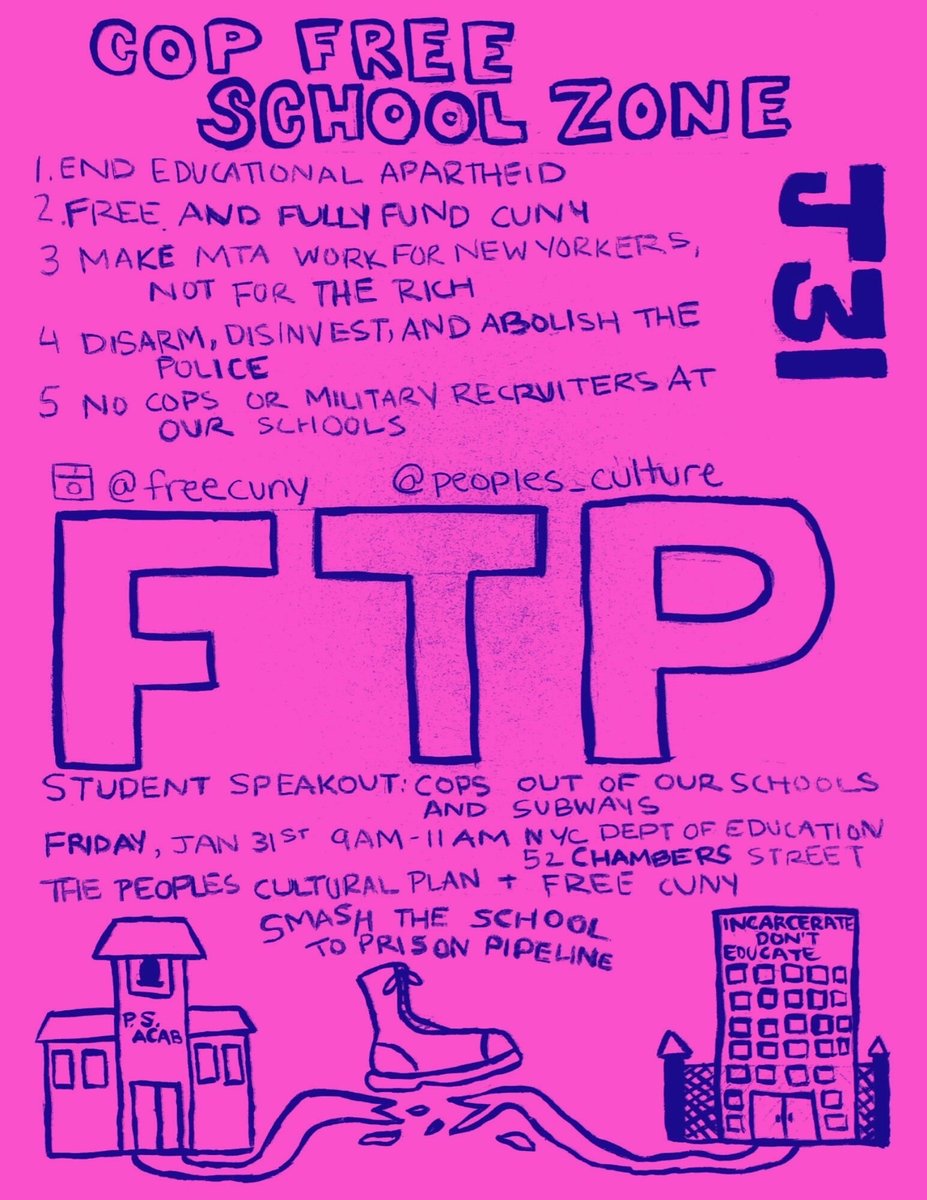 COP FREE
SCHOOL ZONE
J31
1. END EDUCATIONAL APARTHEID
2. FREE AND FULLY FUND CUNY
3 MAKE MTA WORK FOR NEW YORKERS,
NOT FOR THE RICH
4 DISARM, DISINVEST, AND ABOLISH THE
POLICE
5 NO COPS OR MILITARY RECRUITERS AT
OUR SCHOOLS
@freecuny @peoples_culture
FTP
STUDENT SPEAKOUT: COPS OUT OF OUR SCHOOLS
AND SUBWAYS
FRIDAY, JAN 31ST 9AM-11AM NYC DEPT OF EDUCATION
52 CHAMBERS STREET
THE PEOPLES CULTURAL PLAN + FREE CUNY
SMASH THE SCHOOL
TO PRISON PIPELINE
P.S.
ACAB
INCARCERATE
DON'T
EDUCATE